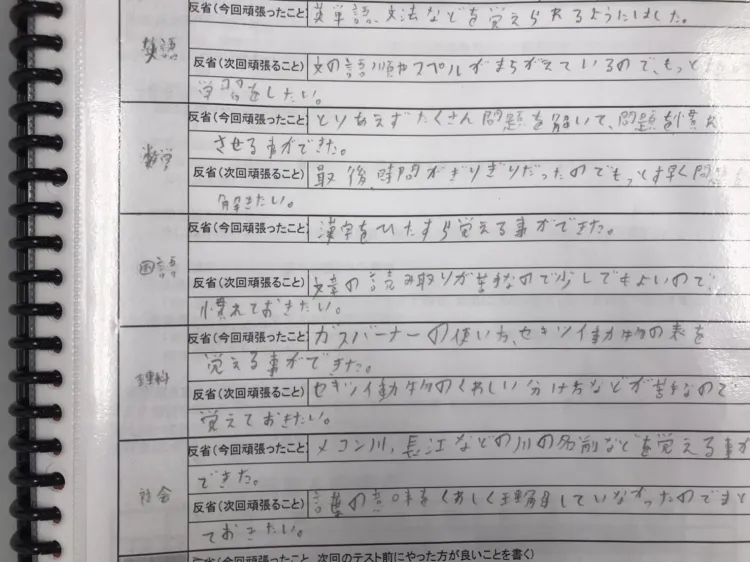 英語
反省(今回頑張ったこと) 英単語、文法などを覚えられるようにしました。
反省(次回頑張ること) 文の語順やスペルがまちがえているので、もっと
学習をしたい。
数学
反省(今回頑張ったこと) とりあえずたくさん問題を解いて、問題を慣れ
させる事ができた。
反省(次回頑張ること) 最後、時間がぎりぎりだったのでもっとす早く問題
解きたい。
国語
反省(今回頑張ったこと) 漢字をひたすら覚える事ができた。
反省(次回頑張ること) 文章の読み取りが苦手なので少しでもよいので、
慣れておきたい。
理科
反省(今回頑張ったこと) ガスバーナーの使い方、セキツイ動物の表を
覚える事ができた。
反省(次回頑張ること) セキツイ動物のくわしい分け方などが苦手なので
覚えておきたい。
社会
反省(今回頑張ったこと) メコン川、長江などの川の名前などを覚える事が
できた。
反省(次回頑張ること) 言葉の意味をくわしく理解していなかったので
ておきたい。
反省(今回頑張ったこと、次回のテスト前にやった方が良いことを書く)